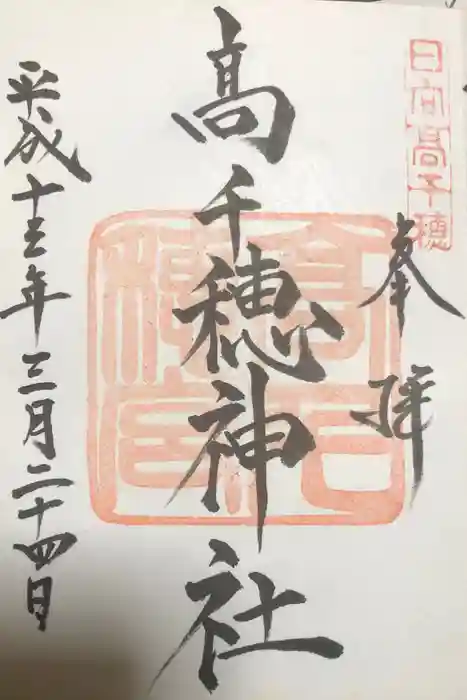 日向高千穂
奉拝
高千穂神社
平成十五年三月二十四日